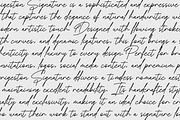 Signature is a sophisticated and expressive
that captures the elegance of natural handwriting w
modern artistic touch. Designed with flowing strokes
curves, and dynamic ligatures, this font brings
and luxury to every design. Perfect for
invitations, logos, social media content, and premium
Signature delivers a timeless romantic aest
maintaining excellent readability. Its handcrafted style
quality and exclusivity, making it an ideal choice for
want their work to stand out with a signature